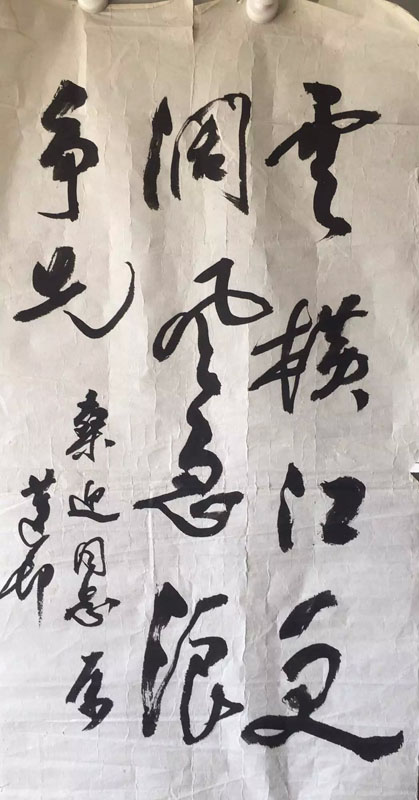 雲横江更
濶风急浪
争先
桑迎同志